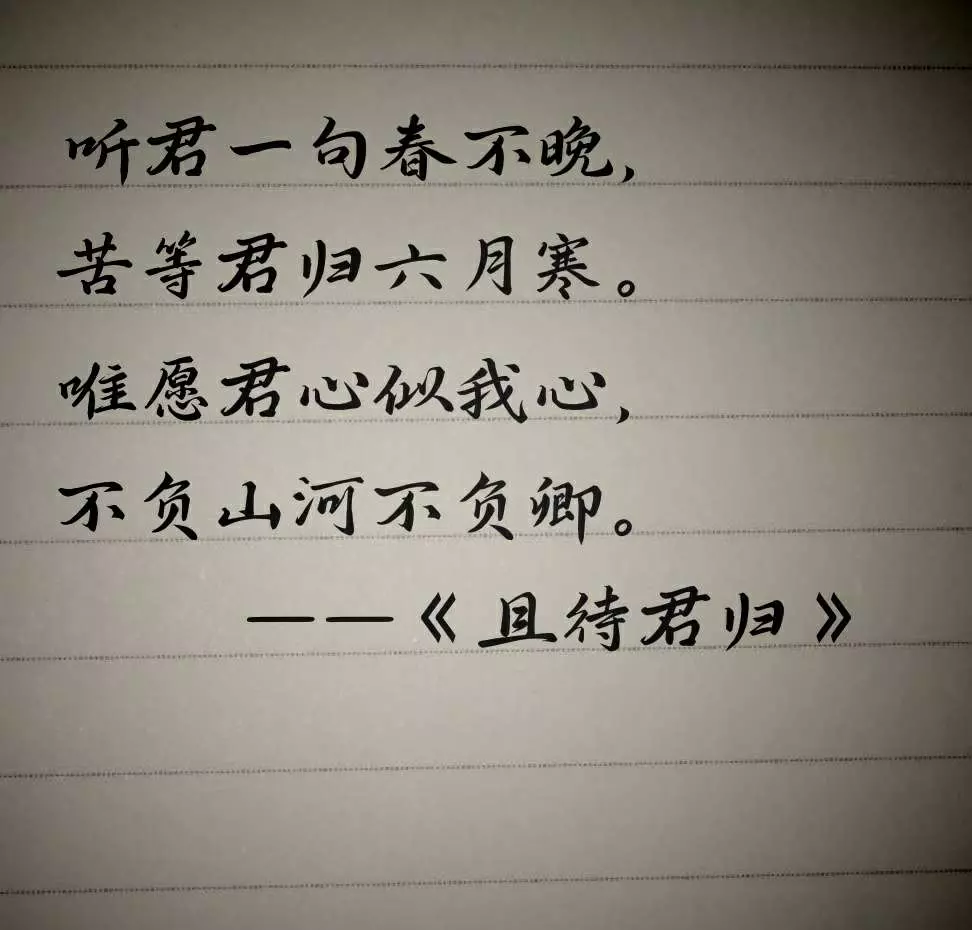 听君一句春不晚,
苦等君归六月寒。
唯愿君心似我心,
不负山河不负卿。
——《且待君归》